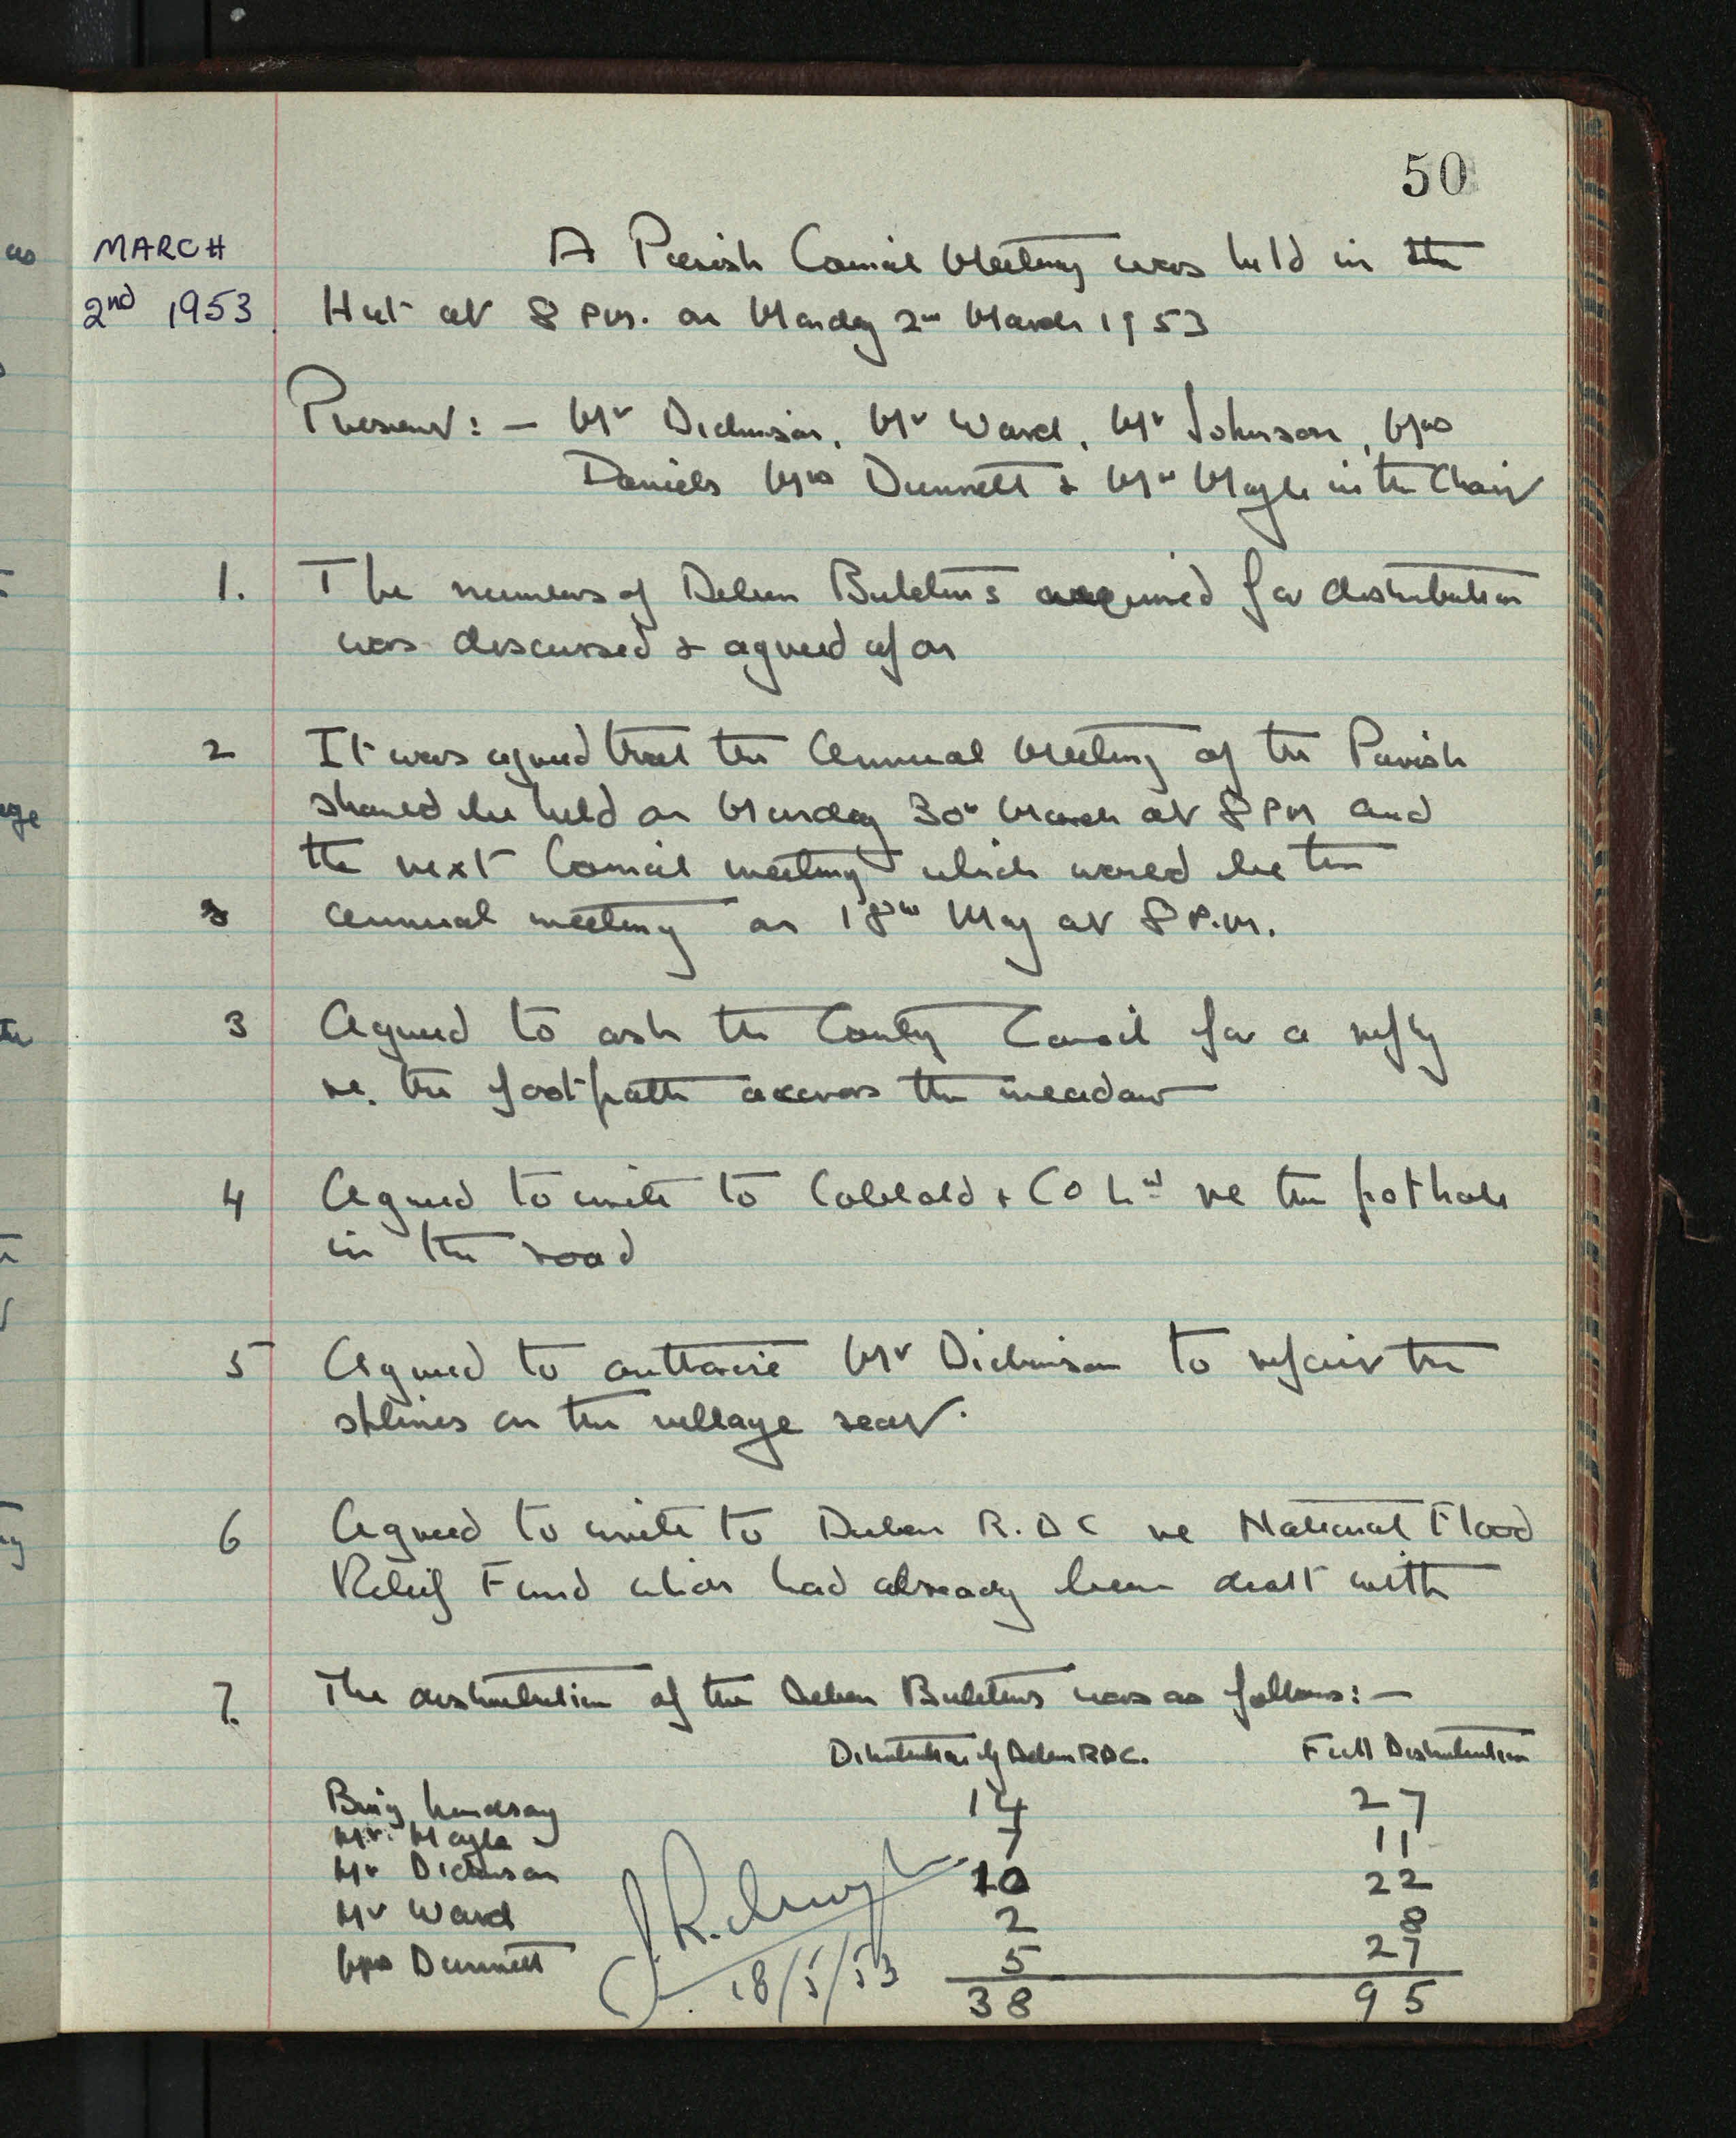 50
MARCH
2nd 1953
A Parish Council Meeting was held in the
Hut at 8 PM. on Monday 2nd March 1953
Present: – Mr Dickinson, Mr Ward, Mr Johnson, Mrs
Daniels Mrs Dunnett & Mr Mayle in the Chair
1. The numbers of Deben Bulletins required for distribution
was discussed & agreed upon
2 It was agreed that the Annual Meeting of the Parish
should be held on Monday 30th March at 8 PM and
the next Council meeting which would be the
3 annual meeting on 18th May at 8 P.M.
3 Agreed to ask the County Council for a reply
re. the footpath across the meadow
4 Agreed to write to Cobbold & Co Ltd re the pothole
in the road
5 Agreed to authorise Mr Dickinson to repair the
on the village seat.
6 Agreed to write to Deben R.D C re National Flood
Relief Fund which had already been dealt with
7. The distribution of the Deben Bulletins was as follows: –
Distribution by Deben RDC. Full Distribution
Brig Lindsay 14 27
Mr. Mayle 7 11
Mr Dickinson 10 22
Mr Ward 2 8
Mrs Dunnett 5 27
18/5/53
38 95